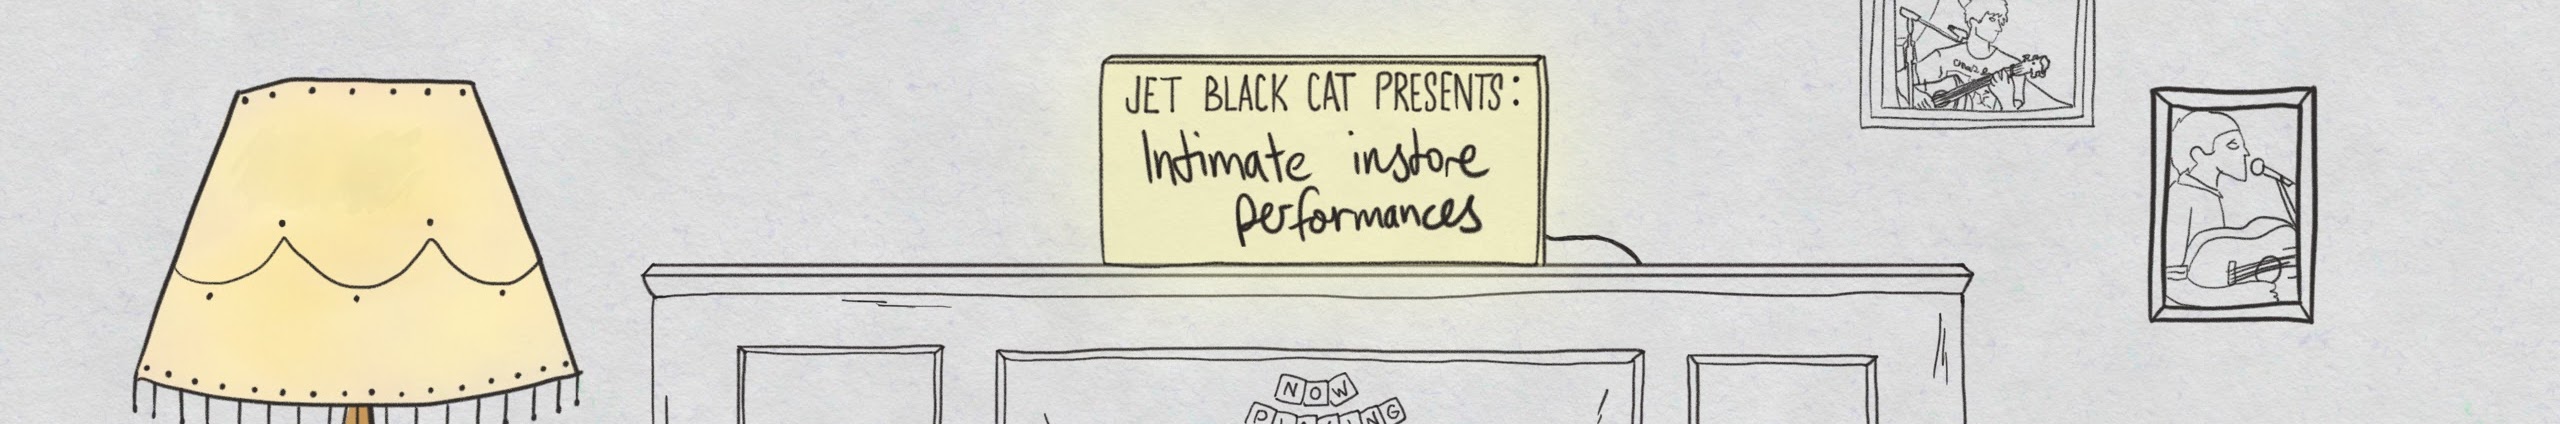 JET BLACK CAT PRESENTS:
Intimate instore
performances
NOW